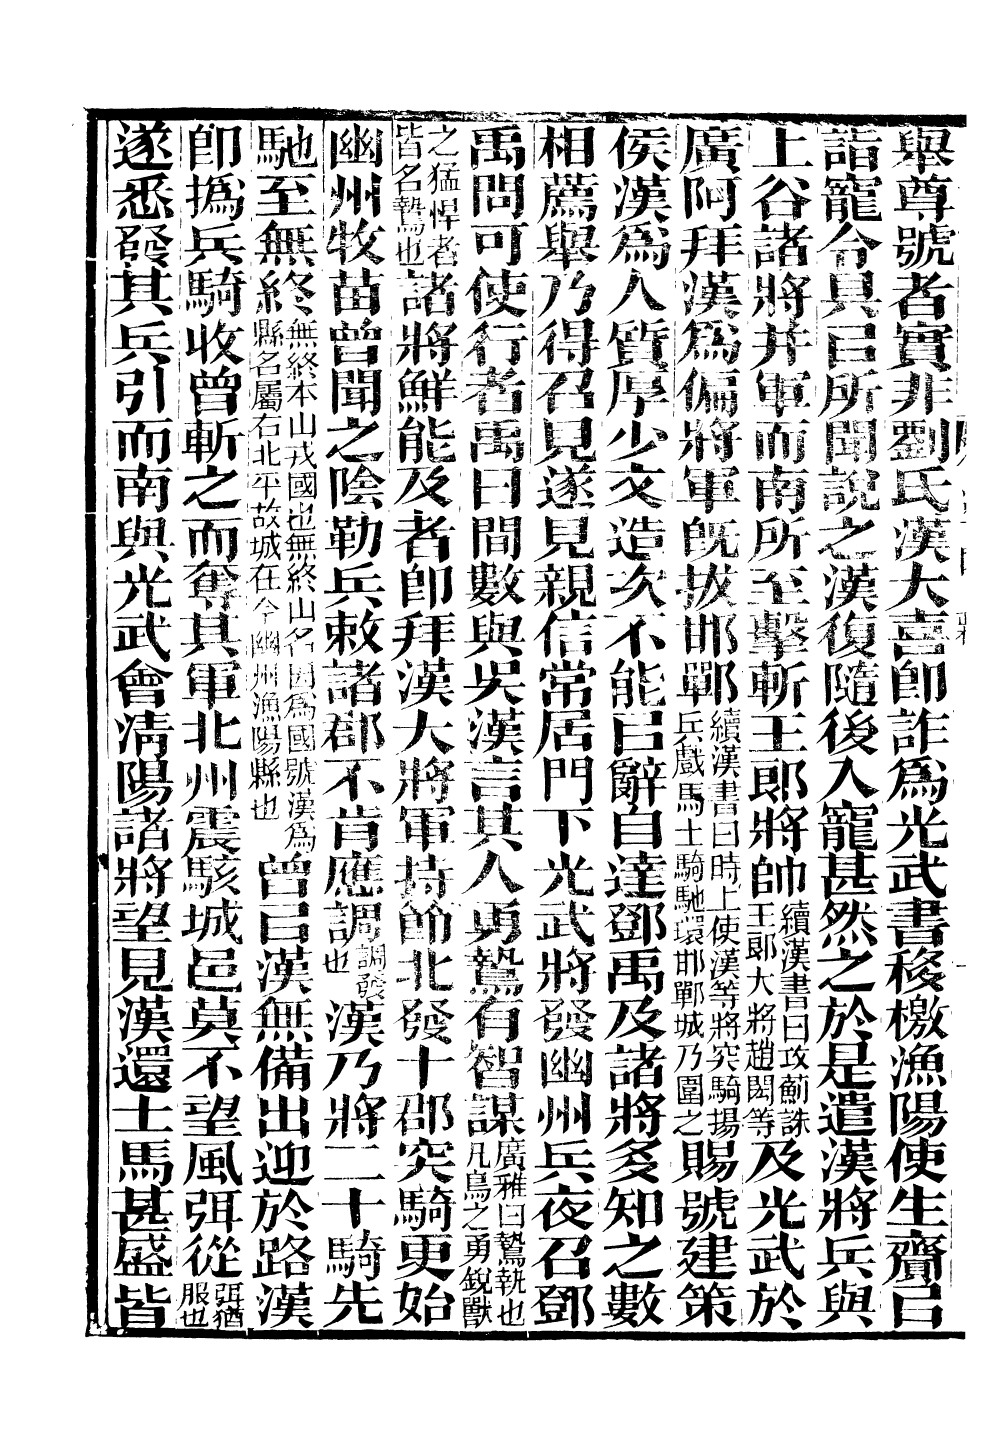 舉尊號者實非劉氏漢大喜即詐爲光武書移檄漁陽使生齎㠯
詣寵令具㠯所聞說之漢復隨後入寵甚然之於是遣漢將兵與
上谷諸將并軍而南所至擊斬王郎將帥續漢書曰攻薊誅王郎大將趙閎等及光武於
廣阿拜漢爲偏將軍旣拔邯鄲續漢書曰時上使漢等將突騎揚兵戲馬士騎馳環邯鄲城乃圍之賜號建策
侯漢爲人質厚少文造次不能㠯辭自達鄧禹及諸將多知之數
相薦舉乃得召見遂見親信常居門下光武將發幽州兵夜召鄧
禹問可使行者禹曰間數與吳漢言其人勇鷙有智謀廣雅曰鷙執也凡鳥之勇銳獸
之猛悍者皆名鷙也諸將鮮能及者即拜漢大將軍持節北發十郡突騎更始
幽州牧苗曾聞之陰勒兵敕諸郡不肯應調調發也漢乃將二十騎先
馳至無終無終本山戎國也無終山名因爲國號漢爲縣名屬右北平故城在今幽州漁陽縣也曾㠯漢無備出迎於路漢
即撝兵騎收曾斬之而奪其軍北州震駭城邑莫不望風弭從弭猶服也
遂悉發其兵引而南與光武會清陽諸將望見漢還士馬甚盛皆